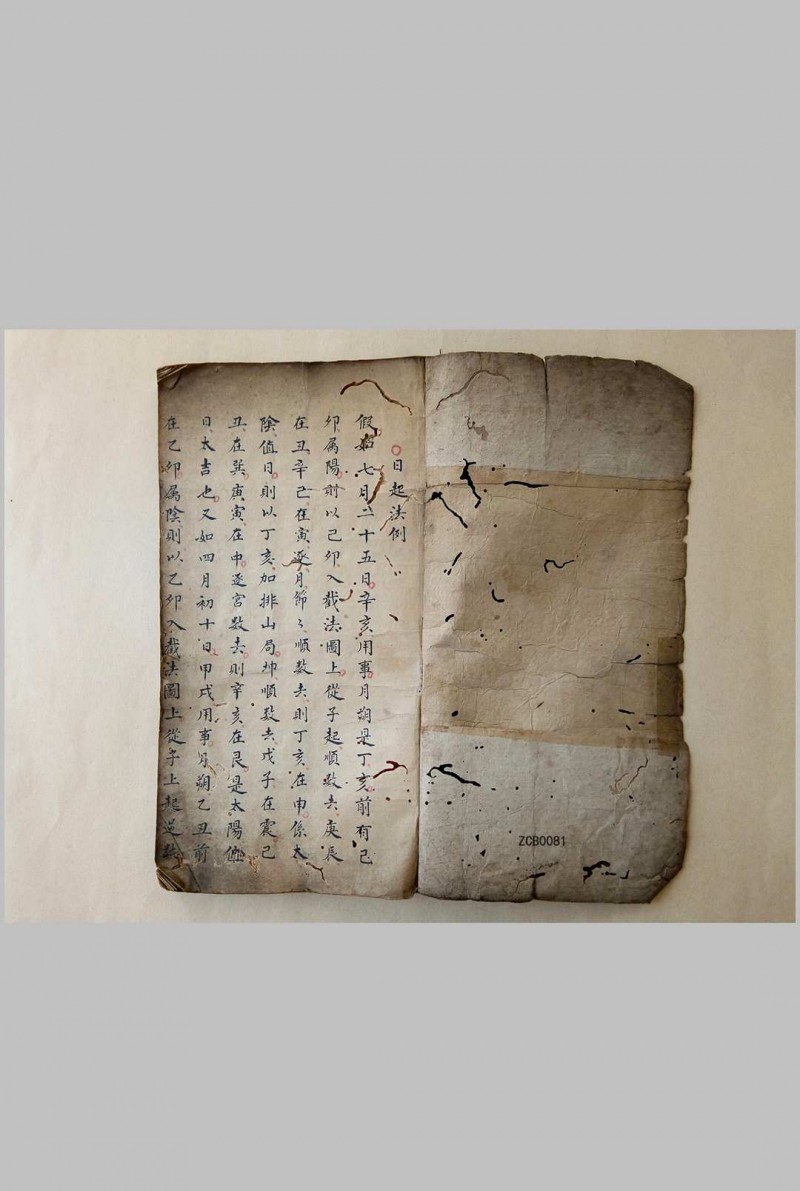 日起法例
假如七月二十五日辛亥用事月朔是丁亥前有己
卯属陽前以己卯入截法圖上從子起順数去庚辰
在丑辛已在寅逐月節々順数去則丁亥在申係太
陰值日則以丁亥加排山局坤順数去戊子在震己
丑在巽庚寅在中逐宮数去則辛亥在艮是太陽值
日太吉也又如四月初十日甲戌用事月朔乙丑前
在乙卯属陰則以乙卯入截法圖上從子上起逆
ZCB0081